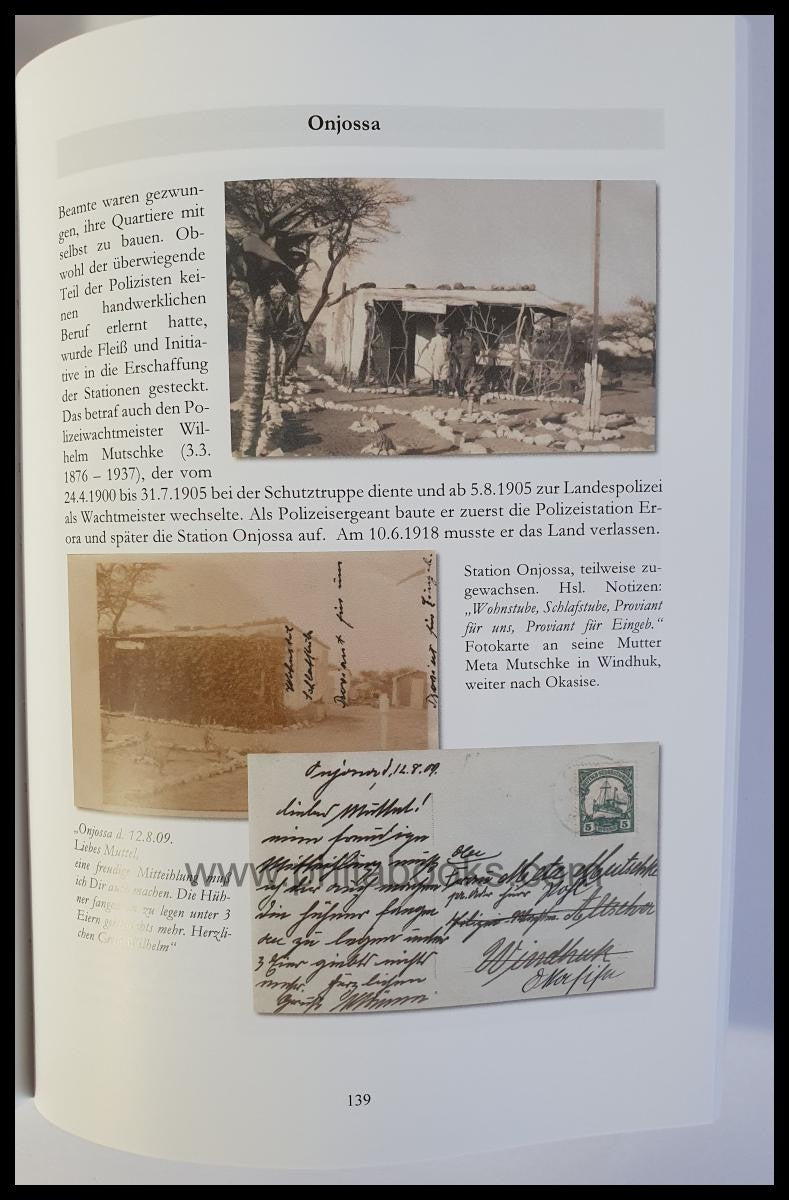 Onjossa
Beamte waren gezwun-
gen, ihre Quartiere mit
selbst zu bauen. Ob-
wohl der überwiegende
Teil der Polizisten kei-
nen handwerklichen
Beruf erlernt hatte,
wurde Fleiß und Initia-
tive in die Erschaffung
der Stationen gesteckt.
Das betraf auch den Po-
lizeiwachtmeister Wil-
helm Mutschke (3.3.
1876 – 1937), der vom
24.4.1900 bis 31.7.1905 bei der Schutztruppe diente und ab 5.8.1905 zur Landespolizei
als Wachtmeister wechselte. Als Polizeisergeant baute er zuerst die Polizeistation Er-
ora und später die Station Onjossa auf. Am 10.6.1918 musste er das Land verlassen.
Wohnstube
Schlafstube
Proviant für uns
Proviant für Eingeb.
Station Onjossa, teilweise zu-
gewachsen. Hsl. Notizen:
„Wohnstube, Schlafstube, Proviant
für uns, Proviant für Eingeb.“
Fotokarte an seine Mutter
Meta Mutschke in Windhuk,
weiter nach Okasise.
„Onjossa d. 12.8.09.
Liebes Muttel,
eine freudige Mitteihlung muß
ich Dir auch machen. Die Hüh-
ner fangen an zu legen unter 3
Eiern giebts nichts mehr. Herzli-
chen Gruß Wilhelm“
Onjossa d. 12.8.09.
Liebes Muttel!
eine freudige
Mitteihlung muß
ich dir auch machen
die Hühner fangen
an zu legen unter
3 Eier giebts nichts
mehr. Herzlichen
Gruß Wilhelm
5 5
Frau Meta Mutschke
Windhuk
Okasise
www.philabooks.com
139